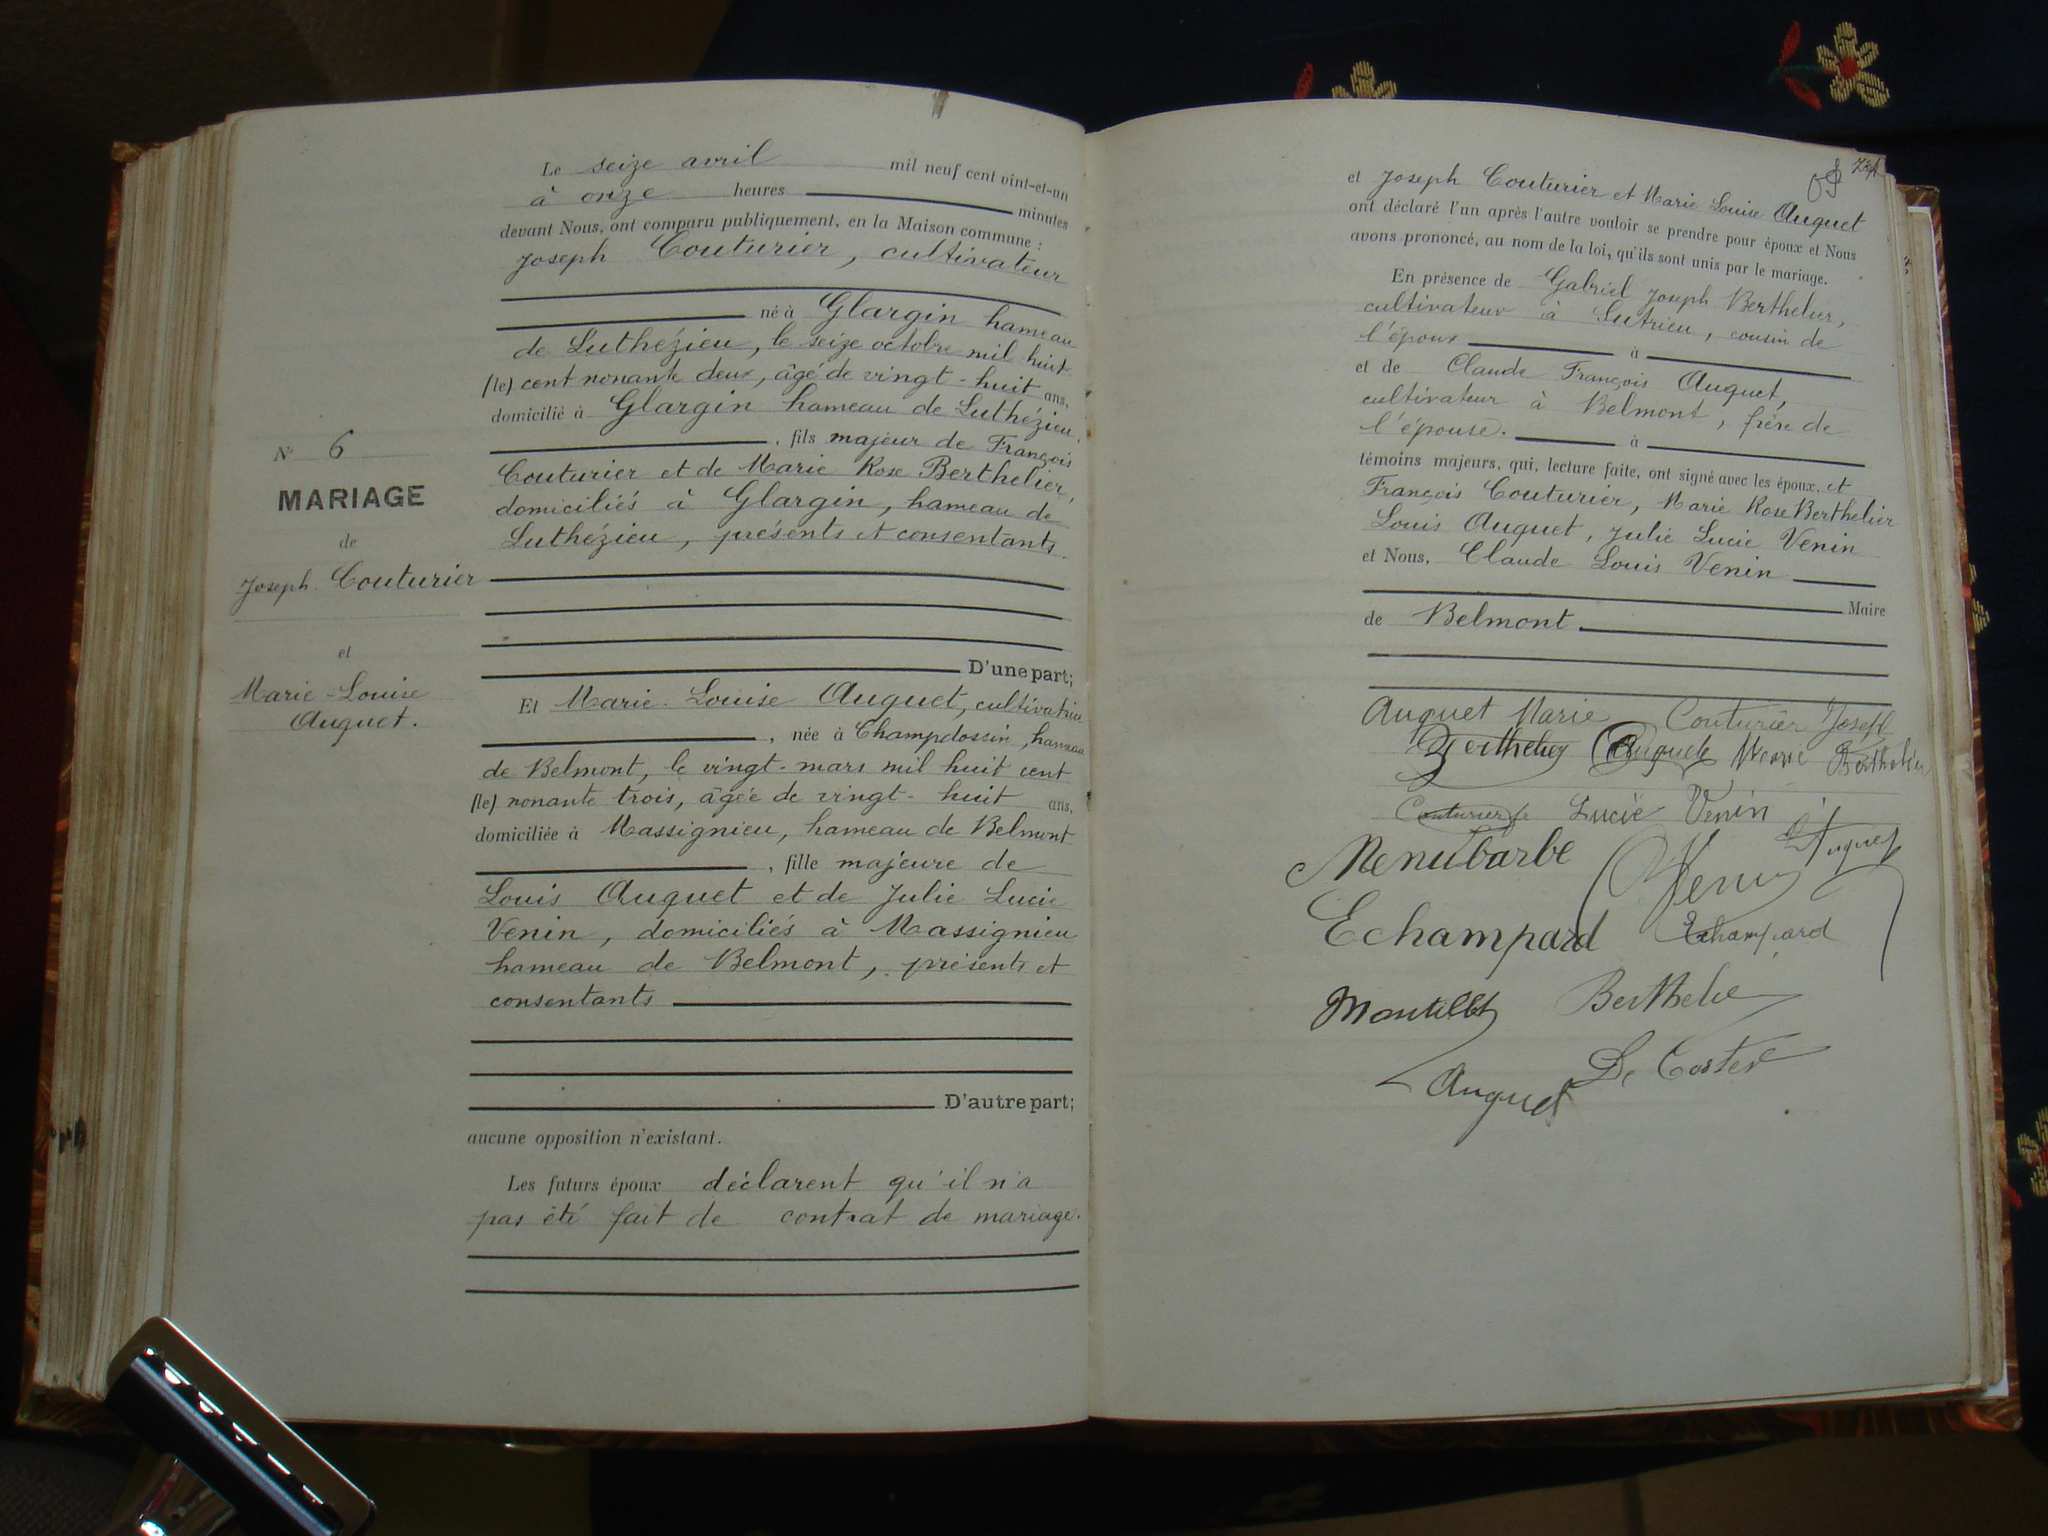 Le seize avril mil neuf cent vint-et-un
à onze heures minutes
devant Nous, ont comparu publiquement, en la Maison commune :
Joseph Couturier, cultivateur
né à Glargin hameau
de Luthézieu, le seize octobre mil huit
(le) cent nonante deux, âgé de vingt-huit ans,
domicilié à Glargin hameau de Luthézieu,
, fils majeur de François
Couturier et de Marie Rose Berthelier,
domiciliés à Glargin, hameau de
Luthézieu, présents et consentants
N° 6
MARIAGE
de
Joseph Couturier
et
Marie-Louise
Auguet.
D'une part;
Et Marie-Louise Auguet, cultivatrice
, née à Champdossin, hameau
de Belmont, le vingt-mars mil huit cent
(le) nonante trois, âgée de vingt-huit ans,
domiciliée à Massignieu, hameau de Belmont
, fille majeure de
Louis Auguet et de Julie Lucie
Venin, domiciliés à Massignieu
hameau de Belmont, présents et
consentants
D'autre part;
aucune opposition n'existant.
Les futurs époux déclarent qu'il n'a
pas été fait de contrat de mariage.
et Joseph Couturier et Marie Louise Auguet
ont déclaré l'un après l'autre vouloir se prendre pour époux et Nous
avons prononcé, au nom de la loi, qu'ils sont unis par le mariage.
En présence de Gabriel Joseph Berthelier,
cultivateur à Sutrieu, cousin de
l'époux à
et de Claude François Auguet,
cultivateur à Belmont, frère de
l'épouse. à
témoins majeurs, qui, lecture faite, ont signé avec les époux, et
François Couturier, Marie Rose Berthelier
Louis Auguet, Julie Lucie Venin
et Nous, Claude Louis Venin
Maire
de Belmont
Auguet Marie Couturier Joseph
Berthelier Auguet Marie Berthelier
Couturier Lucie Venin
Menubarbe Venin Auguet
Echampard Echampard
Montillet Berthelie
Auguet De Coster